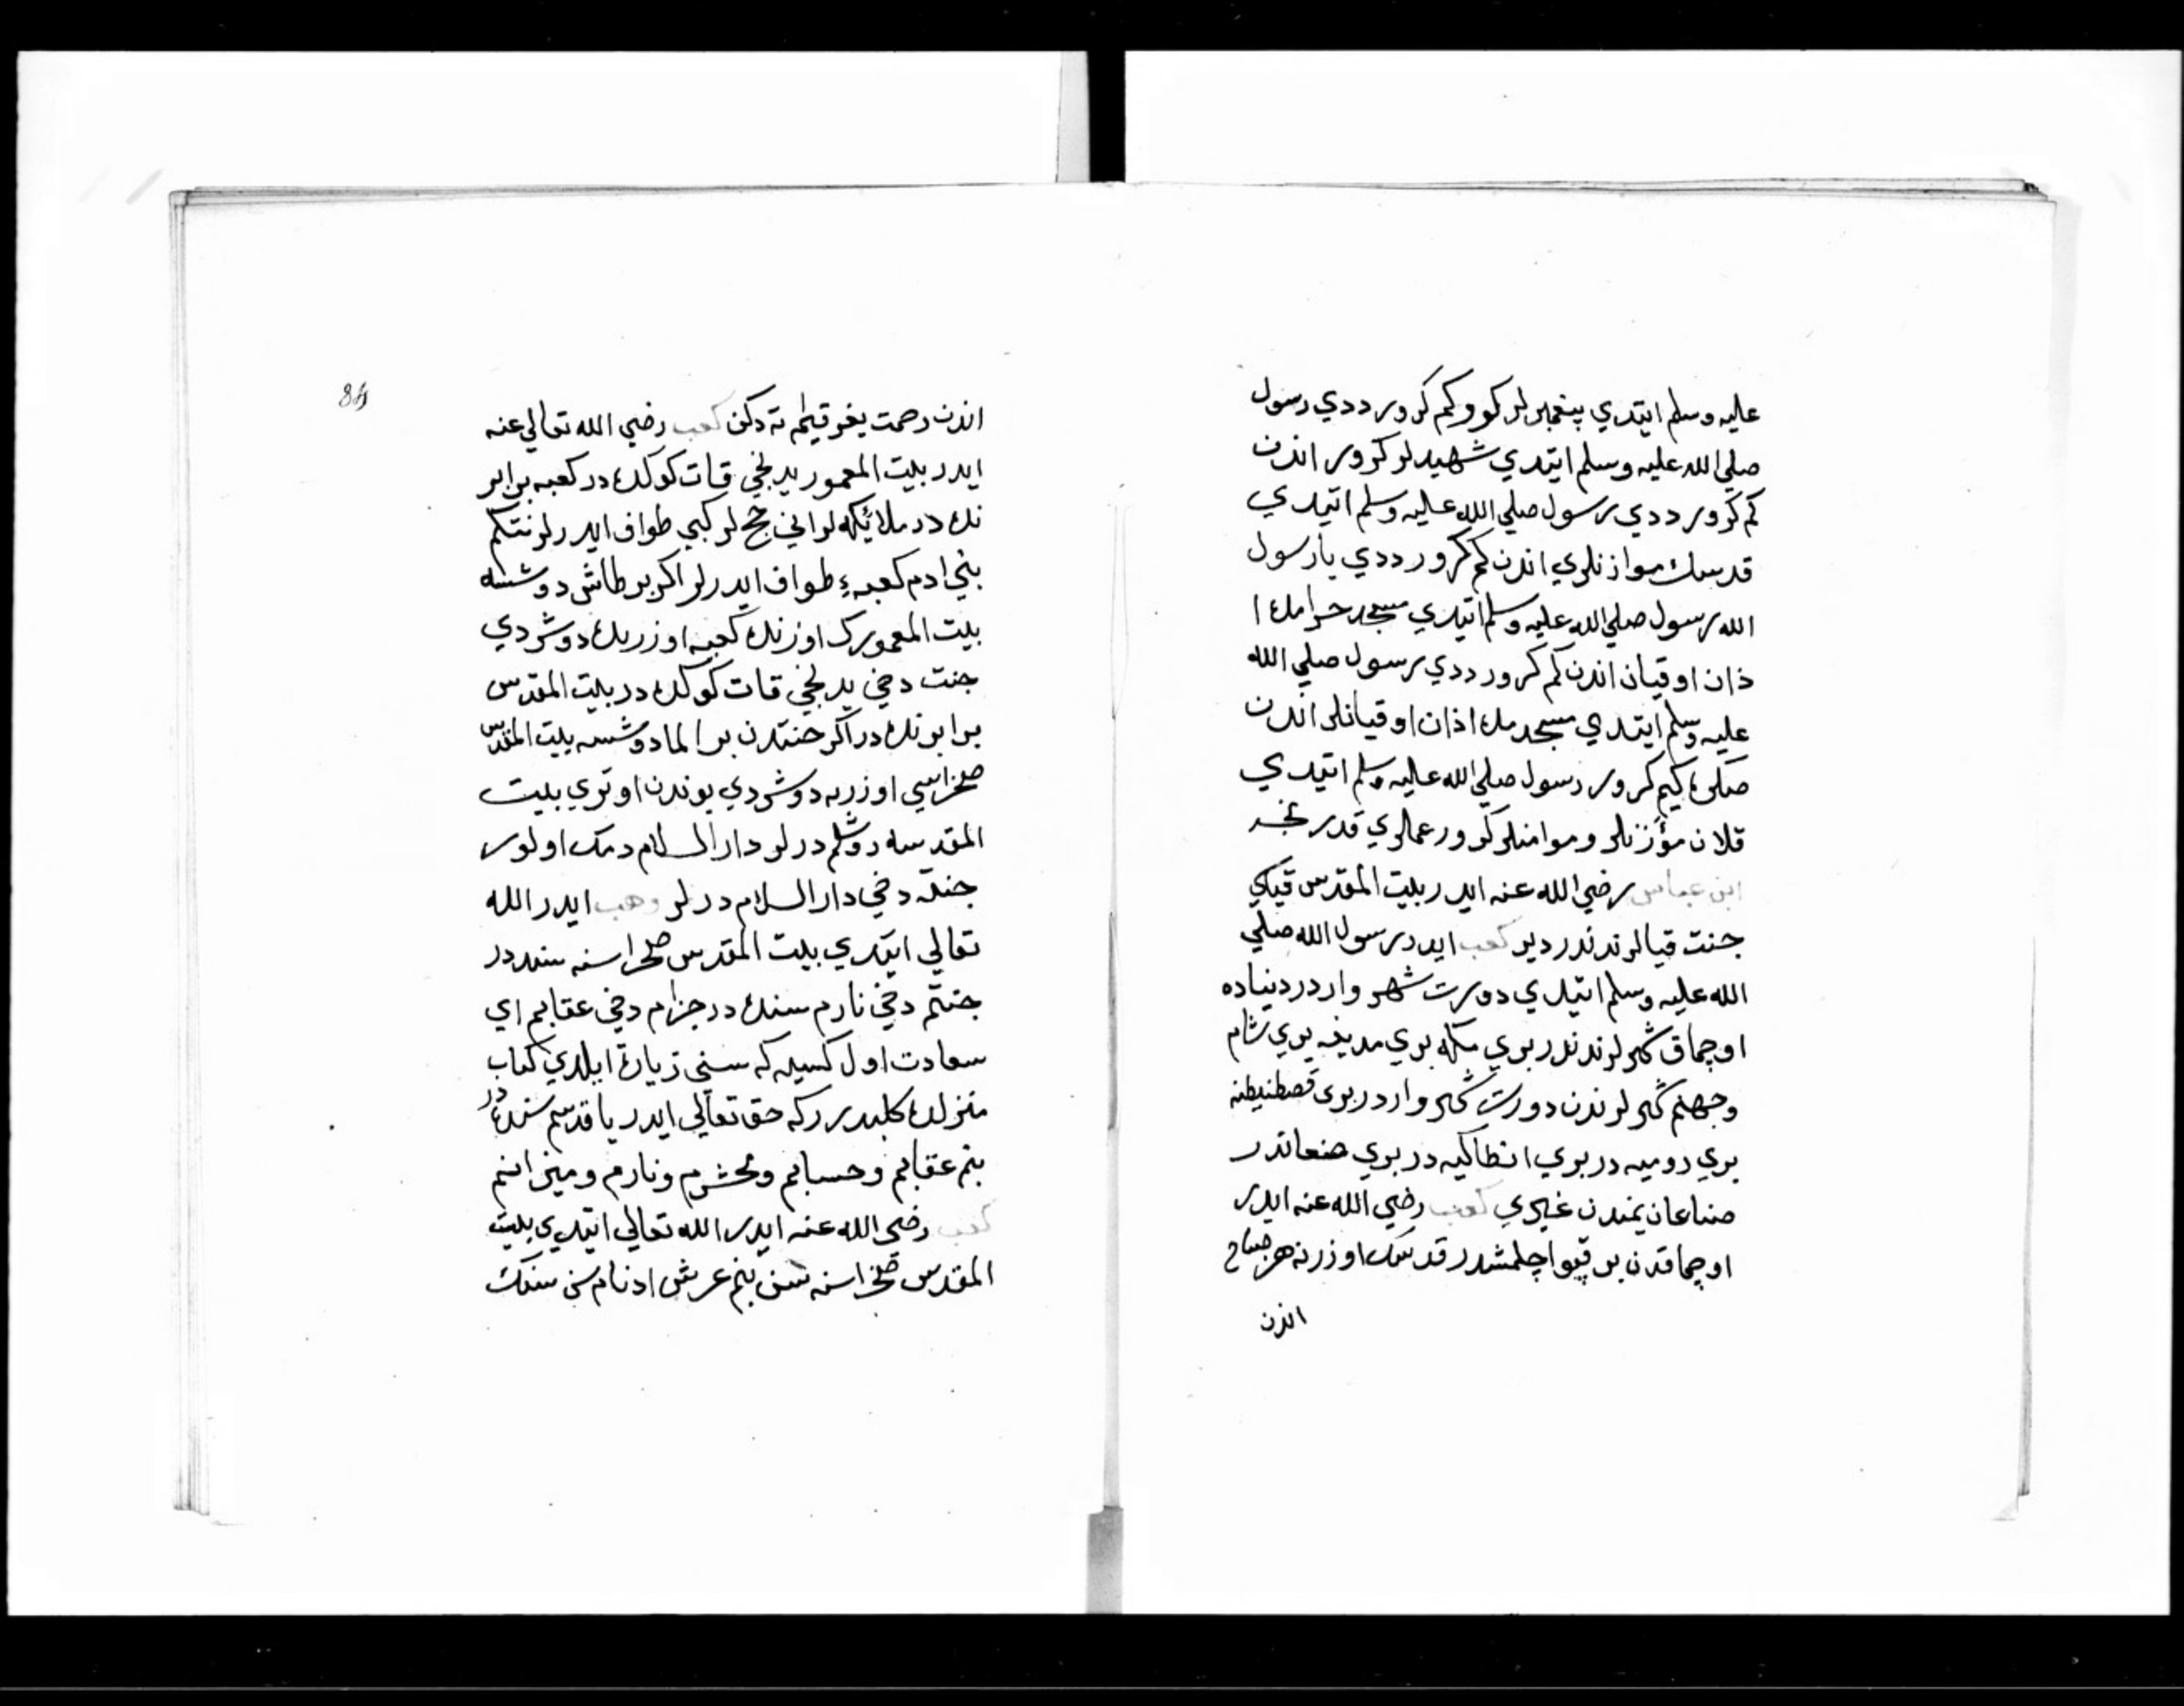 عليه وسلم ايتدي پيغمبرلر كورر كم كرور ددي رسول
صلي الله عليه وسلم ايتدي شهيدلر كرور اندن
كم كرور ددي رسول صلي الله عليه وسلم ايتدي
قدسك موازنلري اندن كم كرور ددي يا رسول
الله رسول صلي الله عليه وسلم ايتدي مسجد حرامده ا
ذان اوقيان اندن كم كرور ددي رسول صلي الله
عليه وسلم ايتدي مسجدمده اذان اوقيانلر اندن
صكره كيم كرور رسول صلي الله عليه وسلم ايتدي
قلان مؤزنلر و موامنلر كرور عمالري قدرنجه
ابن عباس رضي الله عنه ايدر بيت المقدس قياي
جنت قيالرندندر دير كعب ايدر رسول الله صلي
الله عليه وسلم ايتدي دورت شهر واردر دنياده
اوچماق شهرلرندندر بري مكه بري مدينه بري شام
وجهنم شهرلرندن دورت شهر واردر بري قصطنيطنه
بري روميه در بري انطاكيه در بري صنعاندر
صناعان يمندن غيري كعب رضي الله عنه ايدر
اوچماقدن بر قپو اچلمشدر قدسك اوزرنه هر صباح
اندن
84
اندن رحمت يغر قيامته دكن كعب رضي الله تعالي عنه
ايدر بيت المعمور يدنجي قات كوكده در كعبه برابر
نده در ملائيكه لر اني حج لر كبي طواف ايدرلر نتكم
بني ادم كعبهء طواف ايدرلر اكر بر طاش دوشسه
بيت المعمورك اوزرنده كعبه اوزرنده دوشردي
جنت دخي يدنجي قات كوكده در بيت المقدس
برابرنده در اكر جنتدن بر الما دوشسه بيت المقدس
صخراسي اوزره دوشردي بوندن اوتري بيت
المقدسه روشلم درلر دار السلام دمك اولور
جنته دخي دار السلام درلر وهب ايدر الله
تعالي ايتدي بيت المقدس صخراسنه سنده در
جنتم دخي نارم سنده در جزام دخي عقابم اي
سعادت اول كسيه كه سني زيارة ايلدي كتاب
منزلده كلبدرر كه حق تعالي ايدر يا قدسم سنده در
بنم عقابم و حسابم و محشرم و نارم و ميزانم
كعب رضي الله عنه ايدر الله تعالي ايتدي بيت
المقدس صخراسنه سن بنم عرش ادنام سن سنك